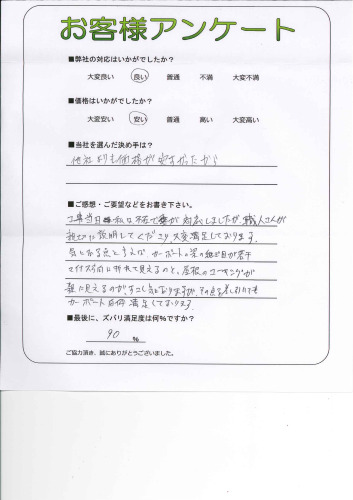 お客様アンケート
■弊社の対応はいかがでしたか？
大変良い 良い 普通 不満 大変不満
■価格はいかがでしたか？
大変安い 安い 普通 高い 大変高い
■当社を選んだ決め手は？
他社よりも価格が安かったから
■ご感想・ご要望などをお書き下さい。
工事当日私は不在で妻が対応しましたが、職人さんが
親切に説明してくださり、大変満足しております。
気になる点と言えば カーポートの梁の継ぎ目が若干
マイナス方向に折れて見えるのと、屋根のコーキングが
雑に見えるのが、すこし気になりますが、その点を差し引いても
カーポート自体満足しております。
■最後に、ズバリ満足度は何％ですか？
90 ％
ご協力頂き、誠にありがとうございました。